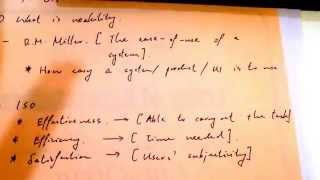 what is usability
- R.M. Miller. [ The ease-of-use of a
system].
* How easy a system/product/UI is to use
ISO
* Effectiveness → [Able to carry out the task]
* Efficiency → [Time needed].
* Satisfaction → [Users' subjectivity].